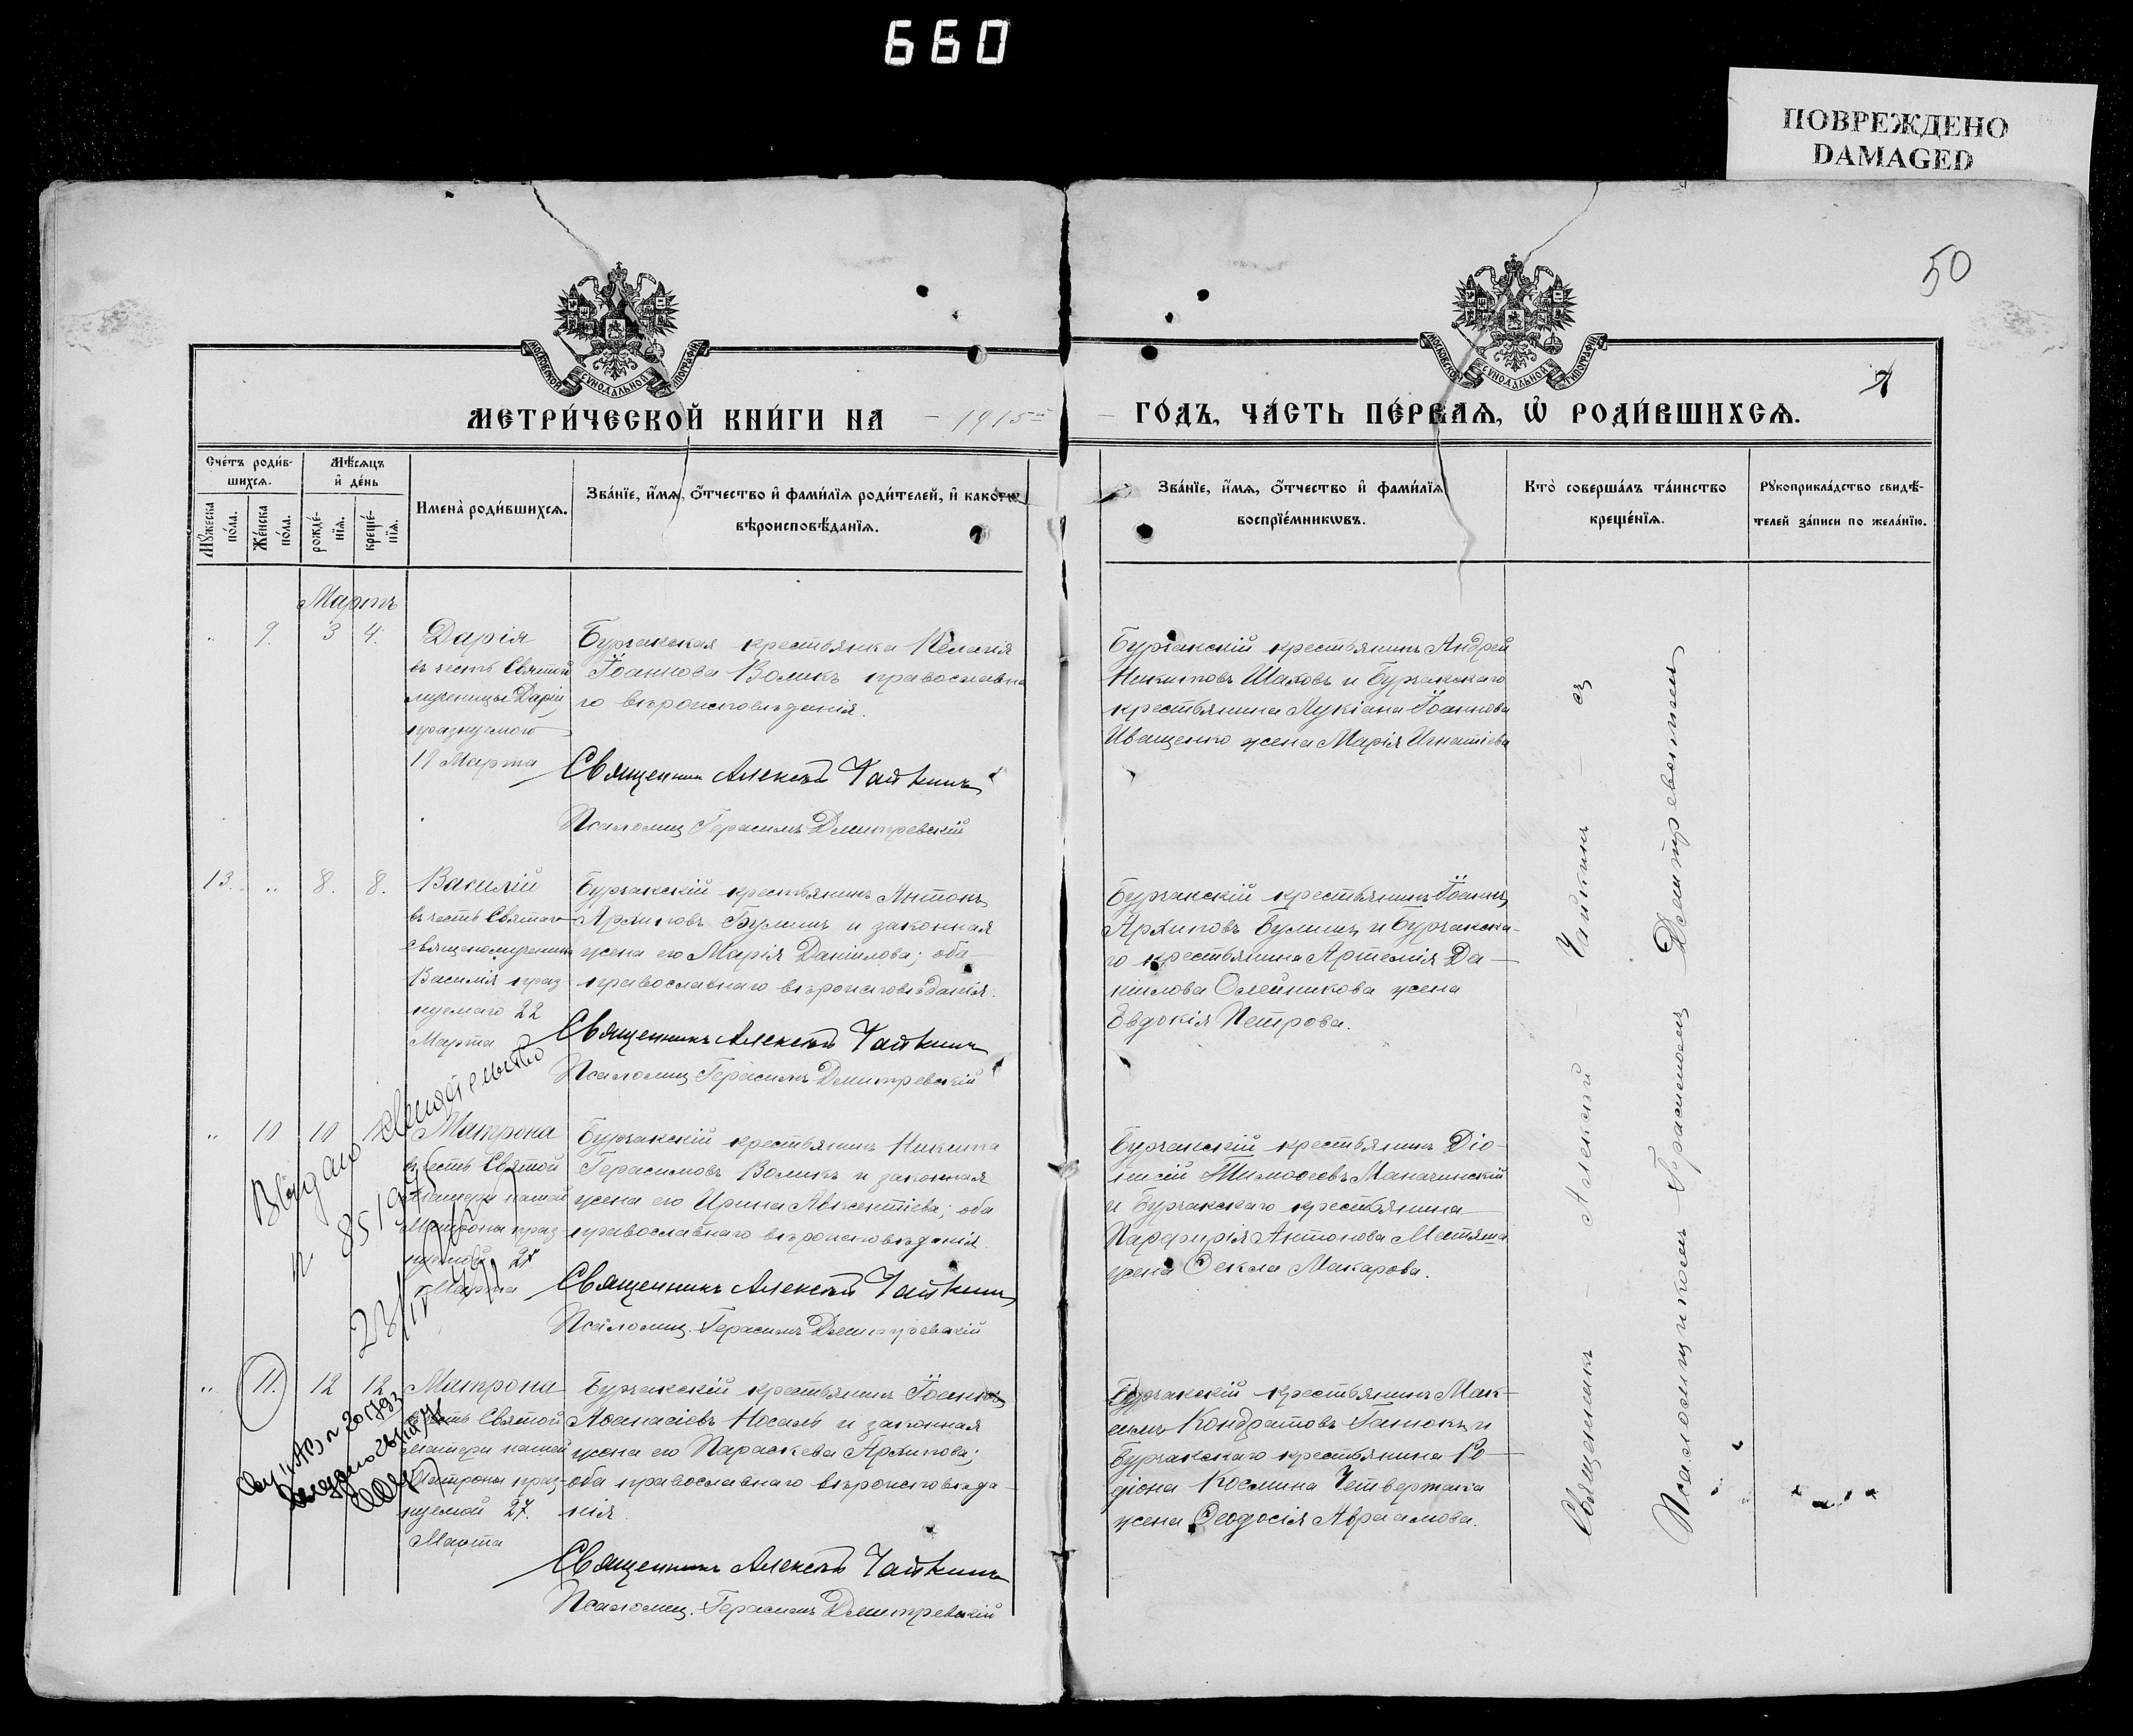 660
ПОВРЕЖДЕНО
DAMAGED
50
МОСКОВСКОЙ СѴНОДАЛЬНОЙ ТИПОГРАФІИ
МОСКОВСКОЙ СѴНОДАЛЬНОЙ ТИПОГРАФІИ
7
МЕТРИ́ЧЕСКОЙ КНИ́ГИ НА – 1915й – ГО́ДЪ, ЧА́СТЬ ПЕ́РВАѦ, Ѽ РОДИ́ВШИХСѦ.
Сче́тъ роди́в-
шихсѧ.
Мѣ́сѧцъ
и҆ де́нь
Мꙋ́жеска
по́ла.
Же́нска
по́ла.
рожде́-
нїѧ.
креще́-
нїѧ.
Имена̀ роди́вшихсѧ.
Зва́нїе, и҆́мѧ, ѻ҆́тчество и҆ фами́лїѧ роди́телей, и҆ како́гѡ
вѣроисповѣ́данїѧ.
Зва́нїе, и҆́мѧ, ѻ҆́тчество и҆ фами́лїѧ
воспрїе́мникѡвъ.
Кто̀ соверша́лъ та́инство
креще́нїѧ.
Рꙋкоприкла́дство свидѣ́-
телей за́писи по жела́нїю.
Мартъ
" 9. 3 4.
Дарія
въ честь Святой
мученицы Даріи,
празнуемой
19 Марта
Бурчакская крестьянка Пелагія
Іоаннова Воликъ православна
го вѣроисповѣданія.
Священникъ Алексѣй Чайкинъ
Псаломщ. Герасимъ Дмитревскій
Бурчакскій крестьянинъ Андрей
Никитовъ Шаховъ и Бурчакскаго
крестьянина Лукіана Іоаннова
Иващенко жена Марія Игнатіева
13. " 8. 8.
Василій
въ честь Святаго
Священномученика
Василія праз
нуемаго 22
Марта
Бурчакскій крестьянинъ Антонъ
Архиповъ Булишъ и законная
жена его Марія Даніилова; оба
православнаго вѣроисповѣданія.
Священникъ Алексѣй Чайкинъ
Псаломщ Герасимъ Дмитревскій
Бурчакскій крестьянинъ Іоаннъ
Архиповъ Булишъ и Бурчакска-
го крестьянина Артемія Да-
ніилова Олейникова жена
Евдокія Петрова.
" 10 10
Матрона
въ честь Святой
Матери нашей
Матроны праз-
нуемой 27
Марта
Бурчакскій крестьянинъ Никита
Герасимовъ Воликъ и законная
жена его Ирина Авксентіева; оба
православнаго вѣроисповѣданія.
Священникъ Алексѣй Чайкинъ
Псаломщ. Герасимъ Дмитревскій
Бурчакскій крестьянинъ Діо-
нисій Тимоѳеевъ Маначинскій
и Бурчакскаго крестьянина
Парфирія Антонова Мотяша
жена Ѳекла Макарова.
Видано свидетельство
" 11. 12 12
Матрона
въ честь Святой
Матери нашей
Матроны праз-
нуемой 27.
Марта
Бурчакскій крестьянинъ Іоаннъ
Аѳанасіевъ Носаль и законная
жена его Параскева Архипова;
оба православнаго вѣроисповѣда-
нія.
Священникъ Алексѣй Чайкинъ
Псаломщ. Герасимъ Дмитревскій
Бурчакскій крестьянинъ Мак-
симъ Кондратовъ Ганюкъ и
Бурчакскаго крестьянина Ро-
діона Космина Четвертака
жена Ѳеодосія Авраамова.
Священникъ – Алексѣй – Чайкинъ – съ
Псаломщикомъ – Герасимомъ Дмитревскимъ